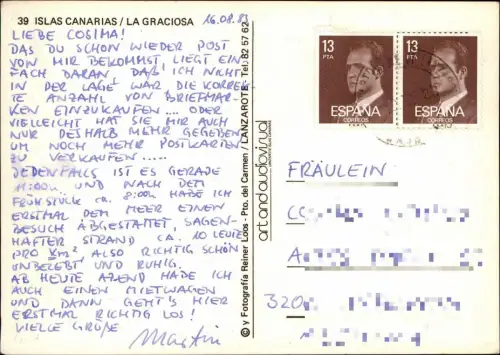 39 ISLAS CANARIAS/LA GRACIOSA
16.08.83
LIEBE COSIMA!
DAS DU SCHON WIEDER POST
VON MIR BEKOMMST, LIEGT EIN
FACH DARAN, DAß, ICH NICHT
IN DER LAGE WAR DIE KORREK
TE ANZAHL VON BRIEFMAR-
KEN EINZUKAUFEN.... ODER
VIELLEICHT HAT SIE MIR AUCH
NUR DESHALB MEHR GEGEBEN
UM NOCH MEHR POSTKARTEN
ZU VERKAUFEN.....
JEDENFALLS IST ES GERADE
11:00h UND NACH DEM
FRÜHSTÜCK ca. 8:00h HABE ICH
ERSTMAL DEM MEER EINEN
BESUCH ABGESTATTET, SAGEN-
HAFTER STRAND ca. 10 LEUTE
PRO KM² ALSO RICHTIG SCHÖN
UNBELEBT UND RUHIG.
AB HEUTE ABEND HABE ICH
AUCH EINEN MIETWAGEN
UND DANN GEHT'S HIER
ERSTMAL RICHTIG LOS!
VIELE GRÜßE
Martin
© y Fotografía Reiner Loos - Pto. del Carmen / LANZAROTE - Tel. 82 57 62
art and audiovisual
13
PTA
ESPAÑA
CORREOS
13
PTA
ESPAÑA
CORREOS
FRÄULEIN
320